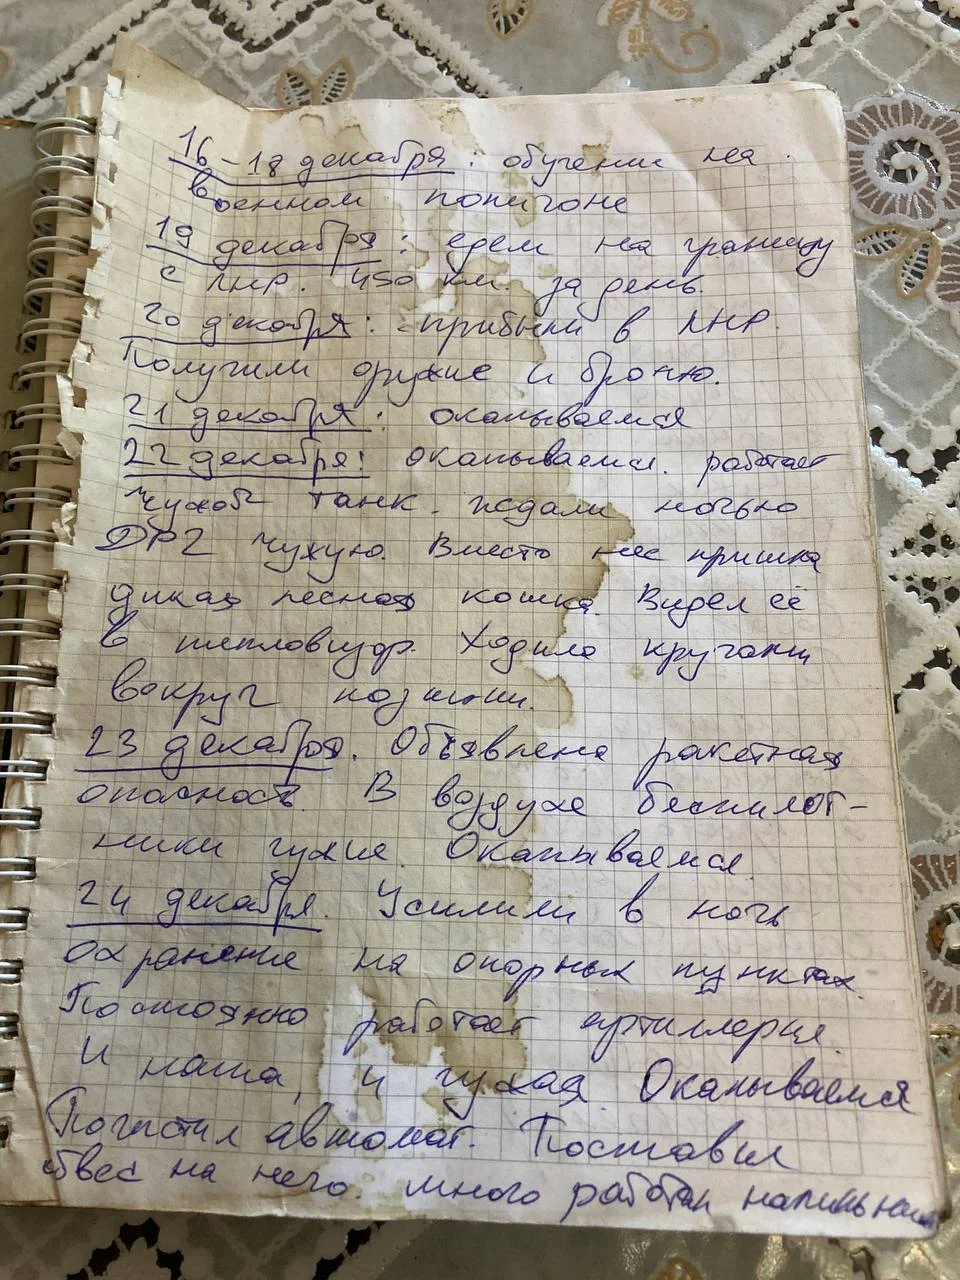 16-18 декабря: обучение на
военном полигоне
19 декабря: едем на границу
с ЛНР. 450 км. за день.
20 декабря: прибыли в ЛНР.
Получили оружие и броню.
21 декабря: окапываемся
22 декабря: окапываемся. работает
чужой танк. ждали ночью
ДРГ чужую. Вместо нее пришла
дикая лесная кошка. Видел её
в тепловизор. Ходила кругами
вокруг позиции.
23 декабря. Объявлена ракетная
опасность. В воздухе беспилот-
ники чужие. Окапываемся
24 декабря. Усилили в ночь
охранение на опорных пунктах.
Постоянно работает артиллерия.
И наша, и чужая. Окапываемся
Почистил автомат. Поставил
обвес на него. много работал напильником